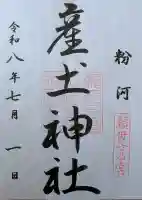 粉河
産土神社
令和八年七月一日